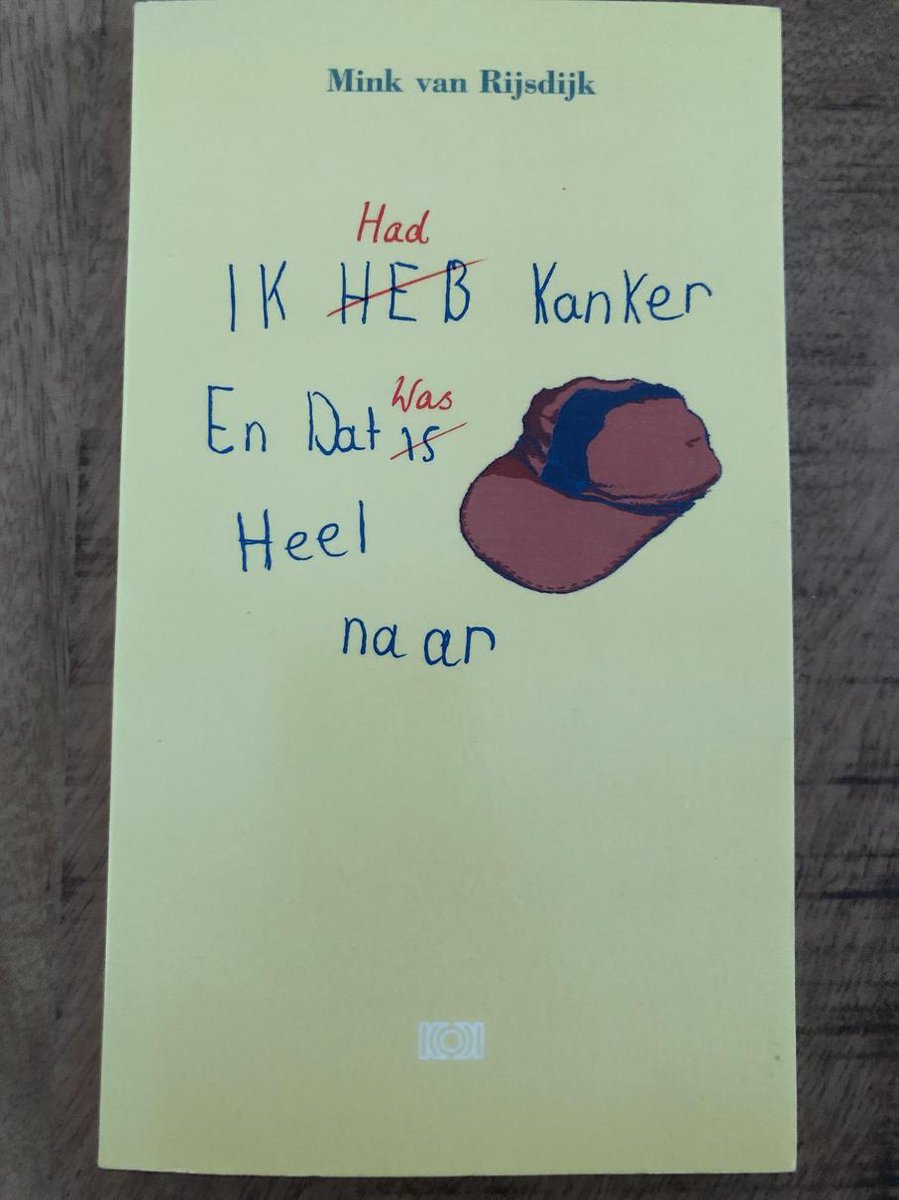 Mink van Rijsdijk
Had
IK HEB KanKer
Was
En Dat is
Heel
naar